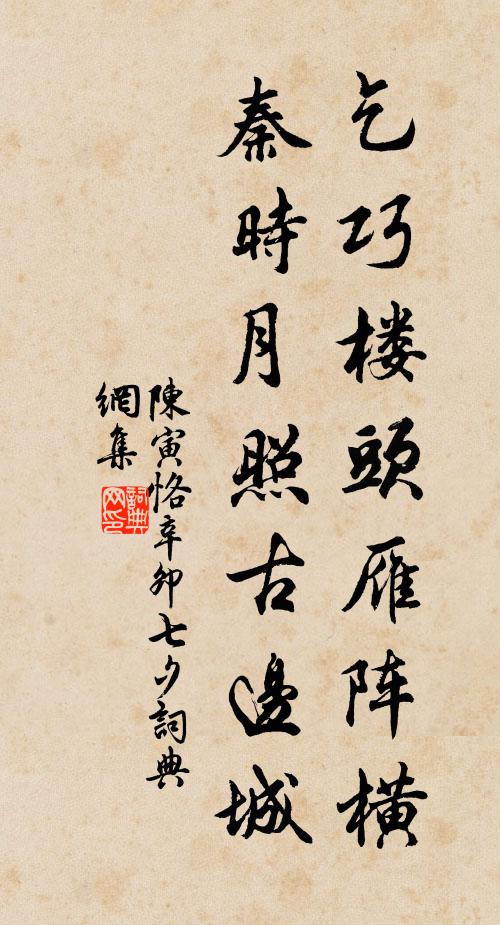 乞巧楼頭雁阵橫
秦時月照古邊城
陳寅恪辛卯七夕詞典
網集
詞典
网印